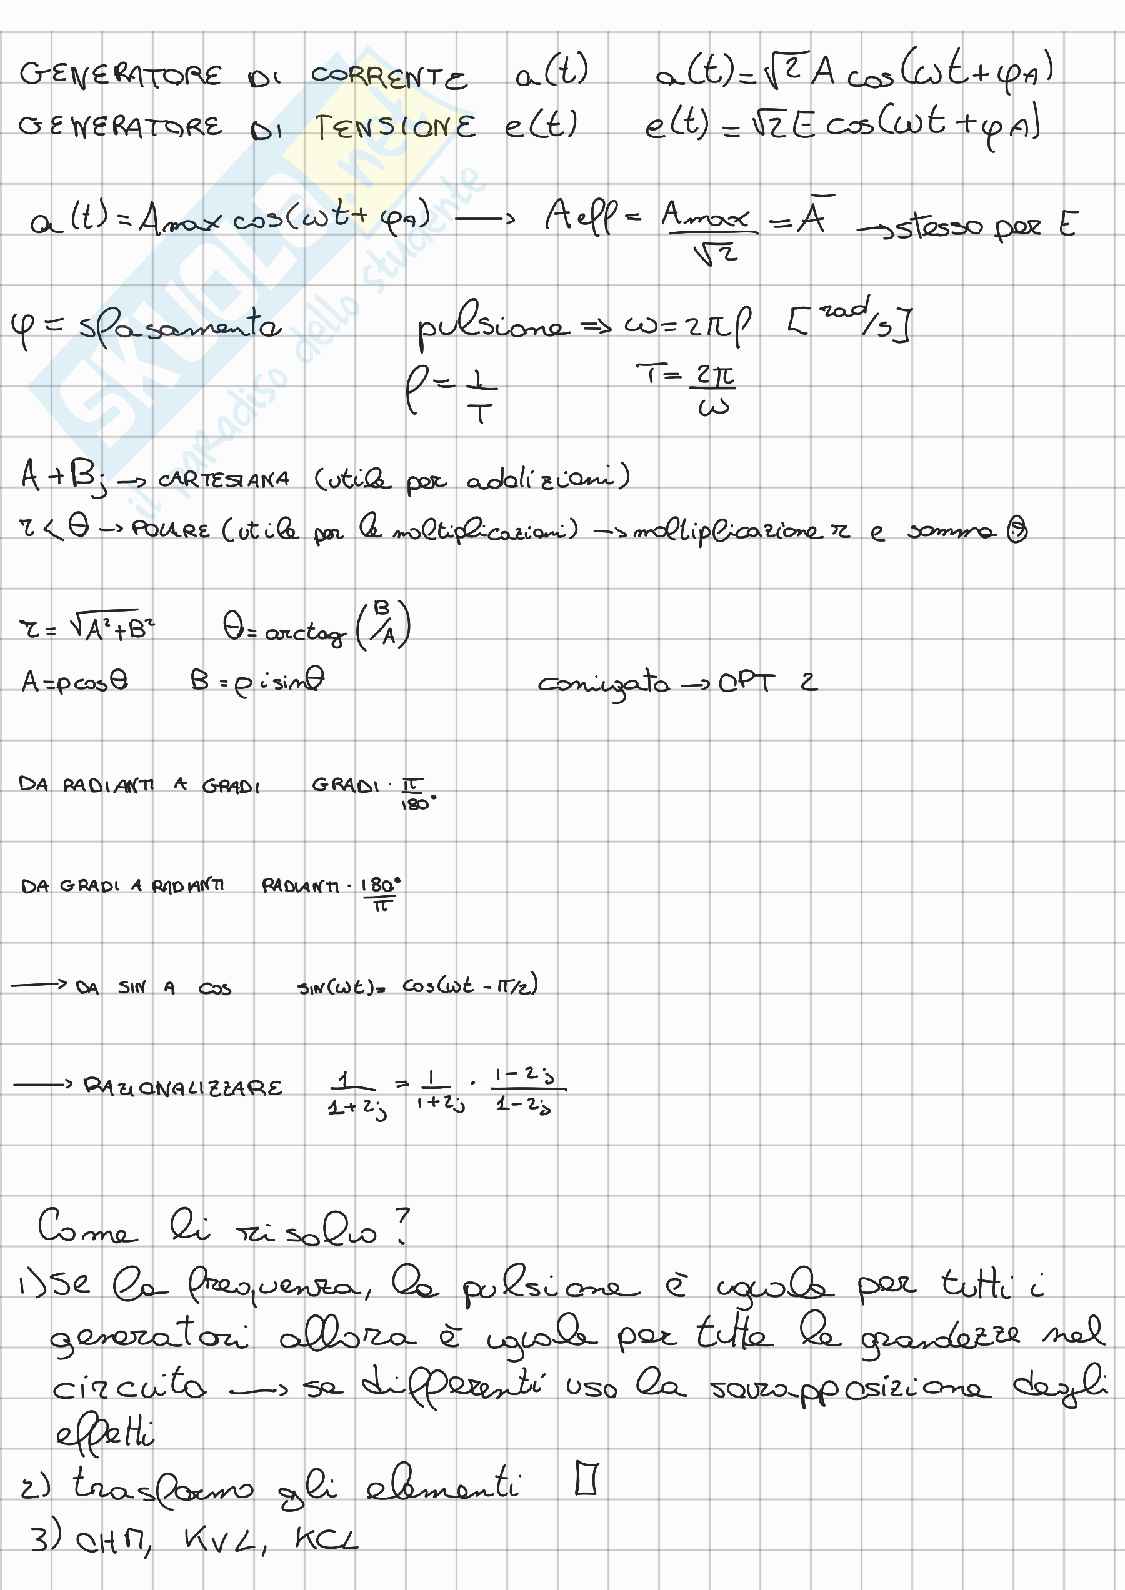 GENERATORE DI CORRENTE a(t) a(t)=√2 A cos(ωt+φA)
GENERATORE DI TENSIONE e(t) e(t)=√2 E cos(ωt+φA)
a(t)=Amax cos(ωt+φA) → Aeff=Amax/√2=Ā → stesso per E
φ= sfasamento pulsione ⇒ ω=2πf [rad/s]
f=1/T T=2π/ω
A+Bj → CARTESIANA (utile per addizioni)
r<θ → POLARE (utile per le moltiplicazioni) → moltiplicazione r e somma θ
r=√A²+B² θ=arctag(B/A)
A=ρcosθ B=ρisinθ coniugato → OPT 2
DA RADIANTI A GRADI GRADI·π/180°
DA GRADI A RADIANTI RADIANTI·180°/π
→ DA SIN A COS SIN(ωt)= COS(ωt-π/2)
→ RAZIONALIZZARE 1/1+2j = 1/1+2j · 1-2j/1-2j
Come li risolvo?
1) Se la frequenza, la pulsione è uguale per tutti i
generatori allora è uguale per tutte le grandezze nel
circuito → se differenti uso la sovrapposizione degli
effetti
2) trasformo gli elementi
3) OHM, KVL, KCL
SKUOLA.net
il paradiso dello studente